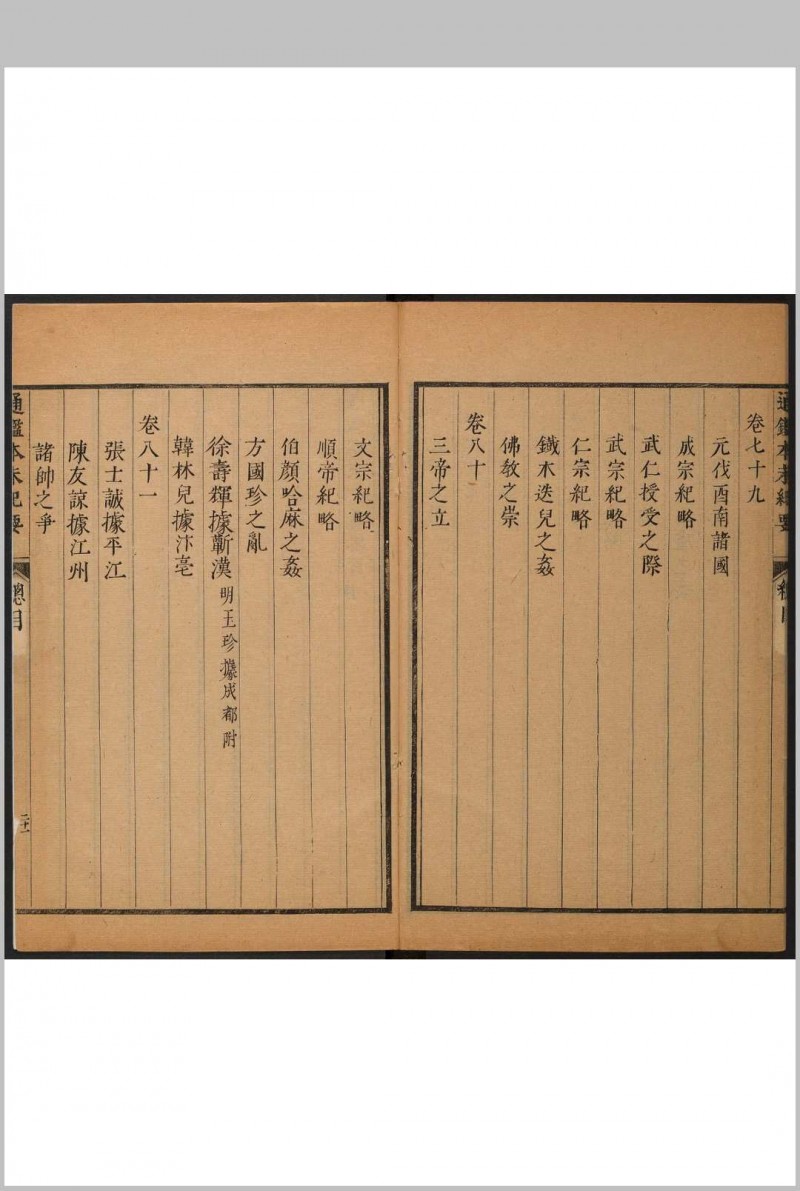 通鑑本末紀要
總目
卷七十九
元伐酉南諸國
成宗紀略
武仁授受之際
武宗紀略
仁宗紀略
鐵木迭兒之姦
佛教之崇
卷八十
三帝之立
文宗紀略
順帝紀略
伯顏哈麻之姦
方國珍之亂
徐壽輝據蘄漢 明玉珍據成都附
韓林兒據汴亳
卷八十一
張士誠據平江
陳友諒據江州
諸帥之爭
通鑑本末紀要
總目